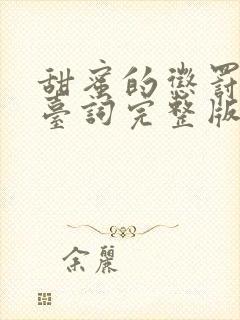 甜蜜的懲罰
臺詞完整版
余麗